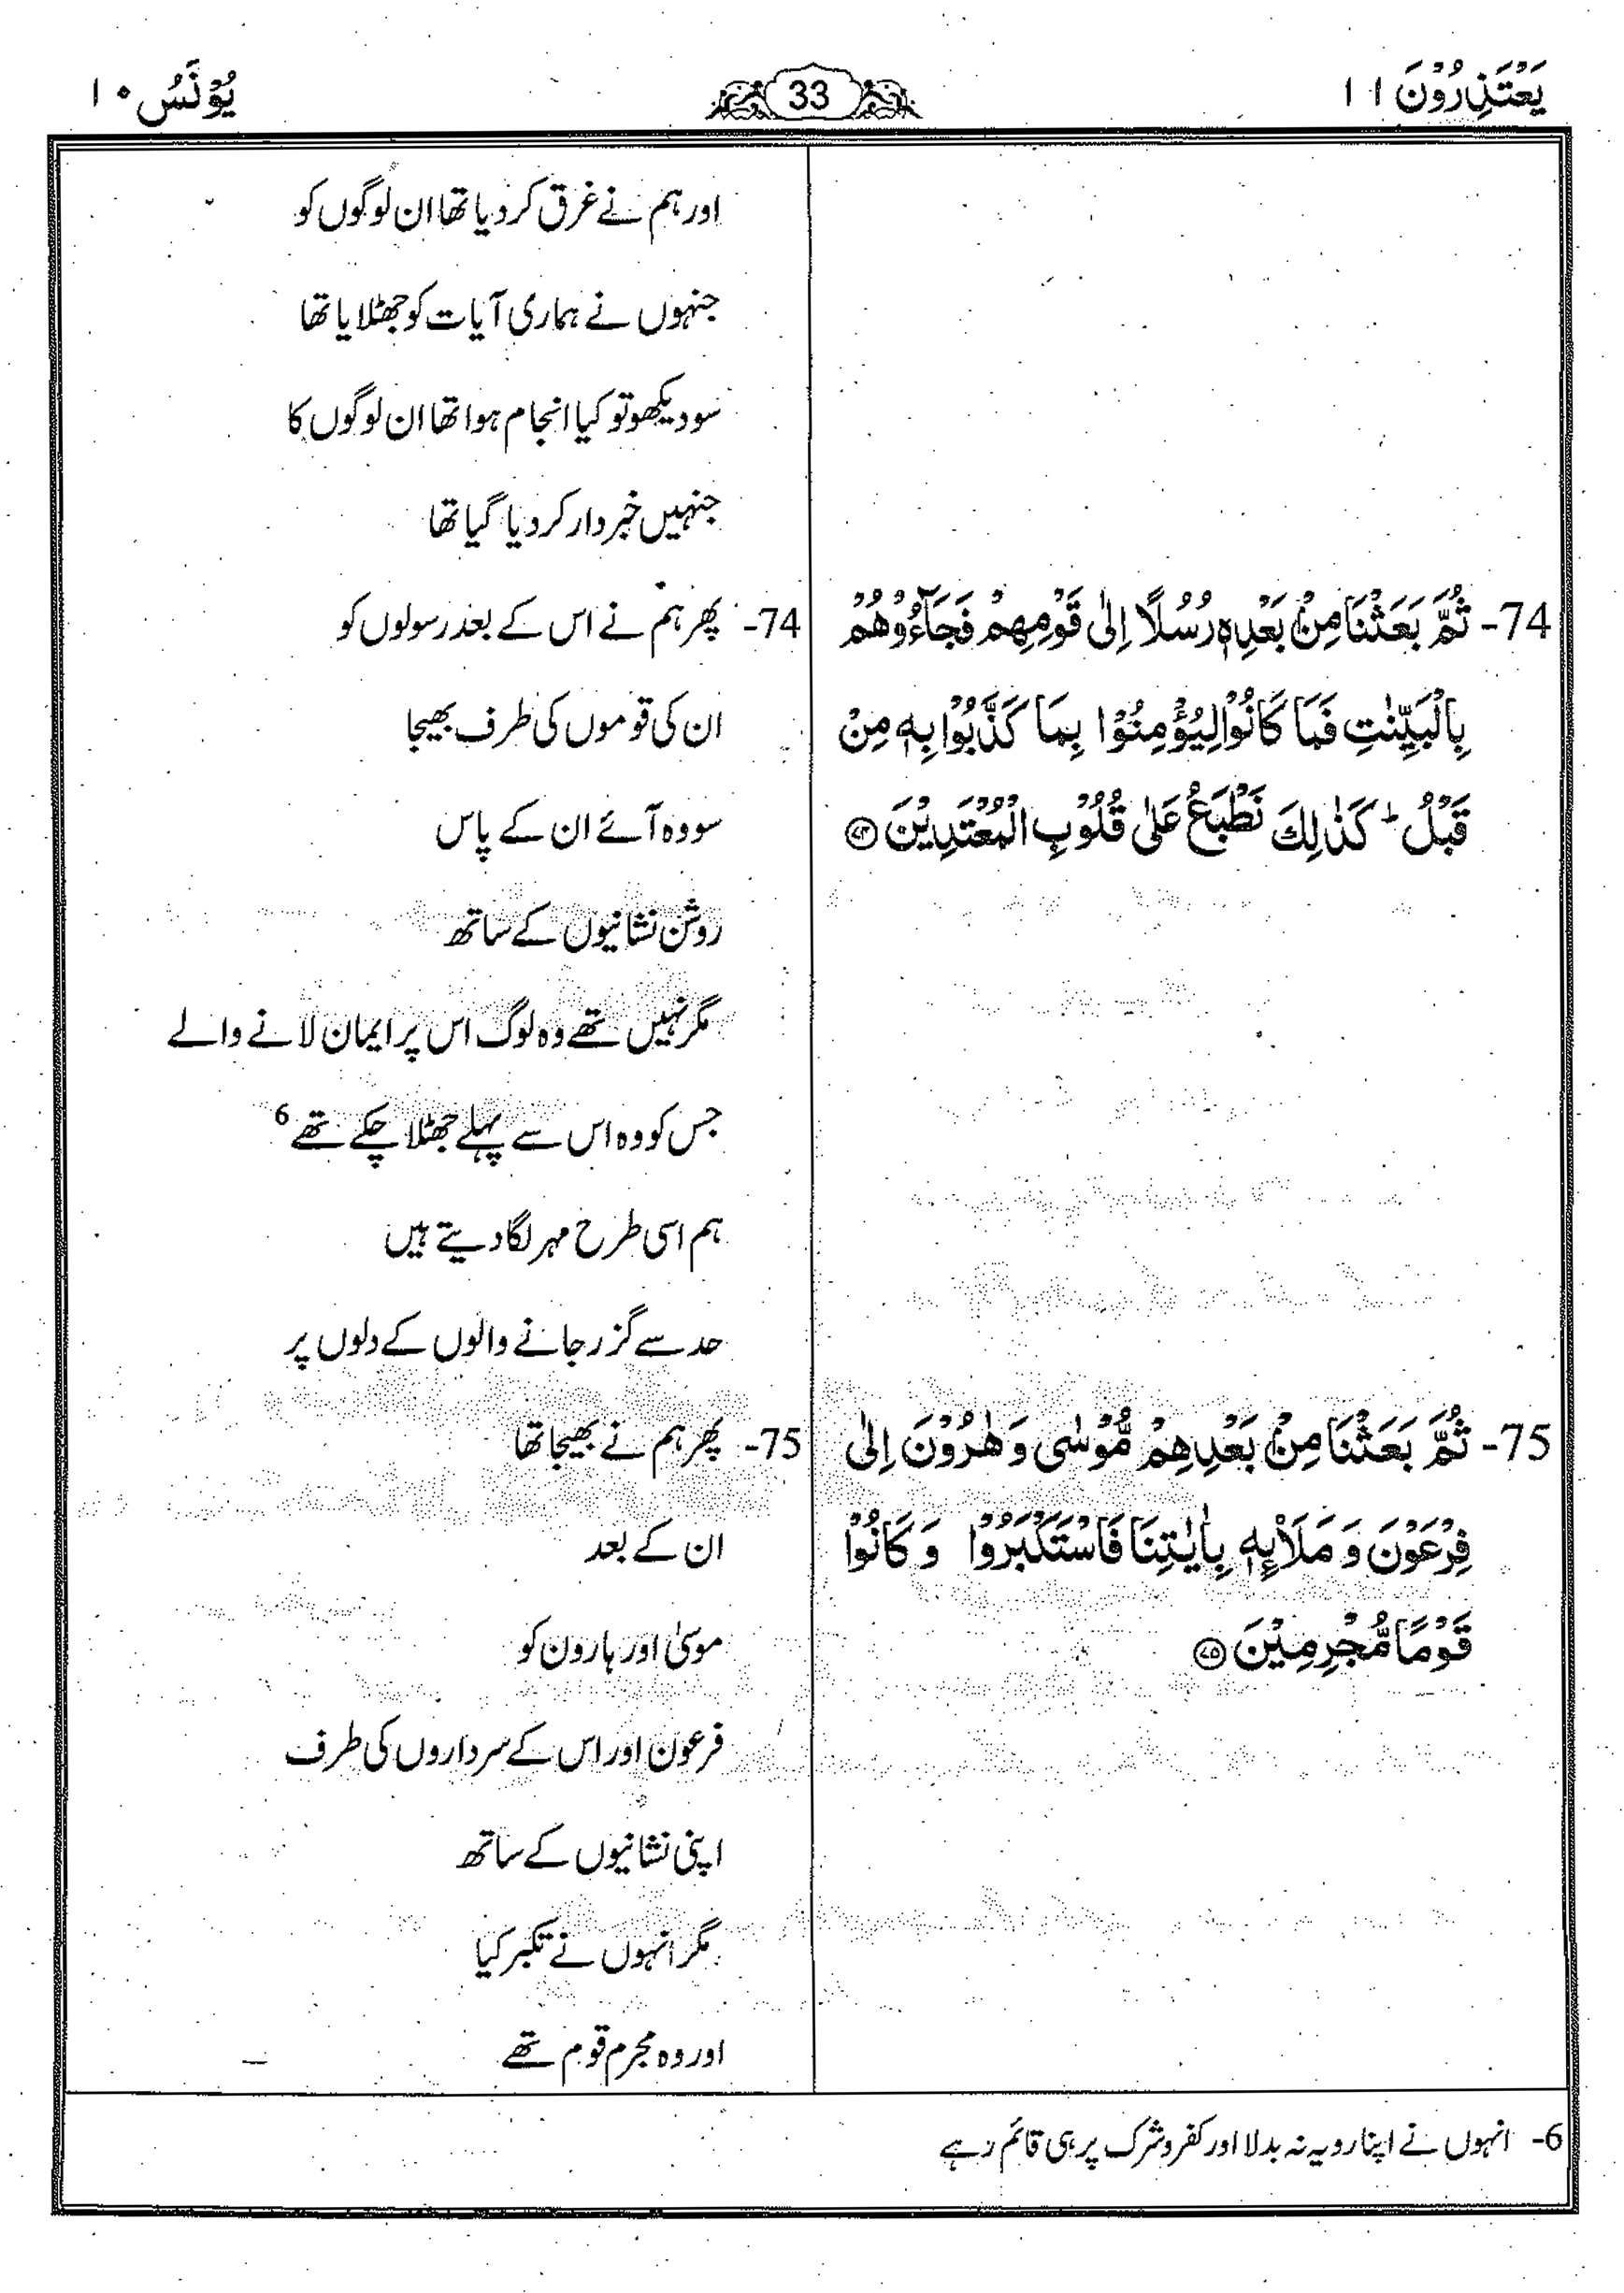 یَعْتَذِرُوْنَ ۱۱
33
یُوْنَسُ ۱۰
اور ہم نے غرق کر دیا تھا ان لوگوں کو
جنہوں نے ہماری آیات کو جھٹلایا تھا
سو دیکھو تو کیا انجام ہوا تھا ان لوگوں کا
جنہیں خبردار کر دیا گیا تھا
74- ثُمَّ بَعَثْنَا مِنْۢ بَعْدِهٖ رُسُلًا اِلٰى قَوْمِهِمْ فَجَآءُوْهُمْ
بِالْبَيِّنٰتِ فَمَا كَانُوْا لِيُؤْمِنُوْا بِمَا كَذَّبُوْا بِهٖ مِنْ
قَبْلُ ؕ كَذٰلِكَ نَطْبَعُ عَلٰى قُلُوْبِ الْمُعْتَدِيْنَ ﴿۷۴﴾
74- پھر ہم نے اس کے بعد رسولوں کو
ان کی قوموں کی طرف بھیجا
سو وہ آئے ان کے پاس
روشن نشانیوں کے ساتھ
مگر نہیں تھے وہ لوگ اس پر ایمان لانے والے
جس کو وہ اس سے پہلے جھٹلا چکے تھے 6
ہم اسی طرح مہر لگا دیتے ہیں
حد سے گزر جانے والوں کے دلوں پر
75- ثُمَّ بَعَثْنَا مِنْۢ بَعْدِهِمْ مُّوْسٰى وَ هٰرُوْنَ اِلٰى
فِرْعَوْنَ وَ مَلَا۟ئِهٖ بِاٰيٰتِنَا فَاسْتَكْبَرُوْا وَ كَانُوْا
قَوْمًا مُّجْرِمِيْنَ ﴿۷۵﴾
75- پھر ہم نے بھیجا تھا
ان کے بعد
موسیٰ اور ہارون کو
فرعون اور اس کے سرداروں کی طرف
اپنی نشانیوں کے ساتھ
مگر انہوں نے تکبر کیا
اور وہ مجرم قوم تھے
6- انہوں نے اپنا رویہ نہ بدلا اور کفر و شرک پر ہی قائم رہے